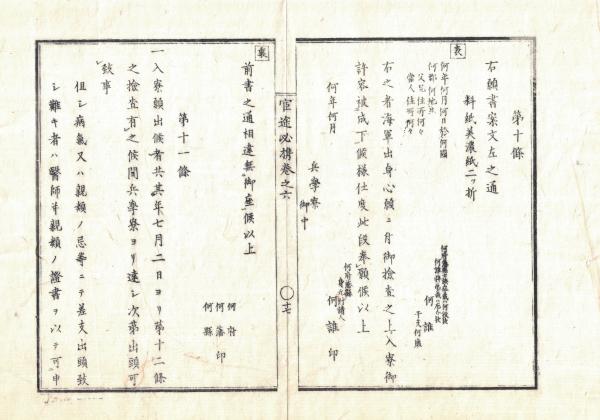 第十條
右願書案文左之通
料紙美濃紙二ッ折
表
何年何月何日於何國
何郡何地生
父兄住所何々
當人住所何々
何誰
干支何歳
右之者海軍出身心願ニ付御檢査之上入寮御
許容被成下候樣仕度此段奉願候以上
身元引請人
何誰印
何年何月
兵學寮
御中
官途必携巻之六
裏
前書之通相違無御座候以上
何府
何藩印
何縣
第十一條
一入寮願出候者共其年七月二日ヨリ第十二條
之檢査有之候間兵學寮ヨリ達シ次第出頭可
致事
但シ病氣又ハ親類ノ忌等ニテ差支出頭致
シ難キ者ハ醫師幷親類ノ證書ヲ以テ可申